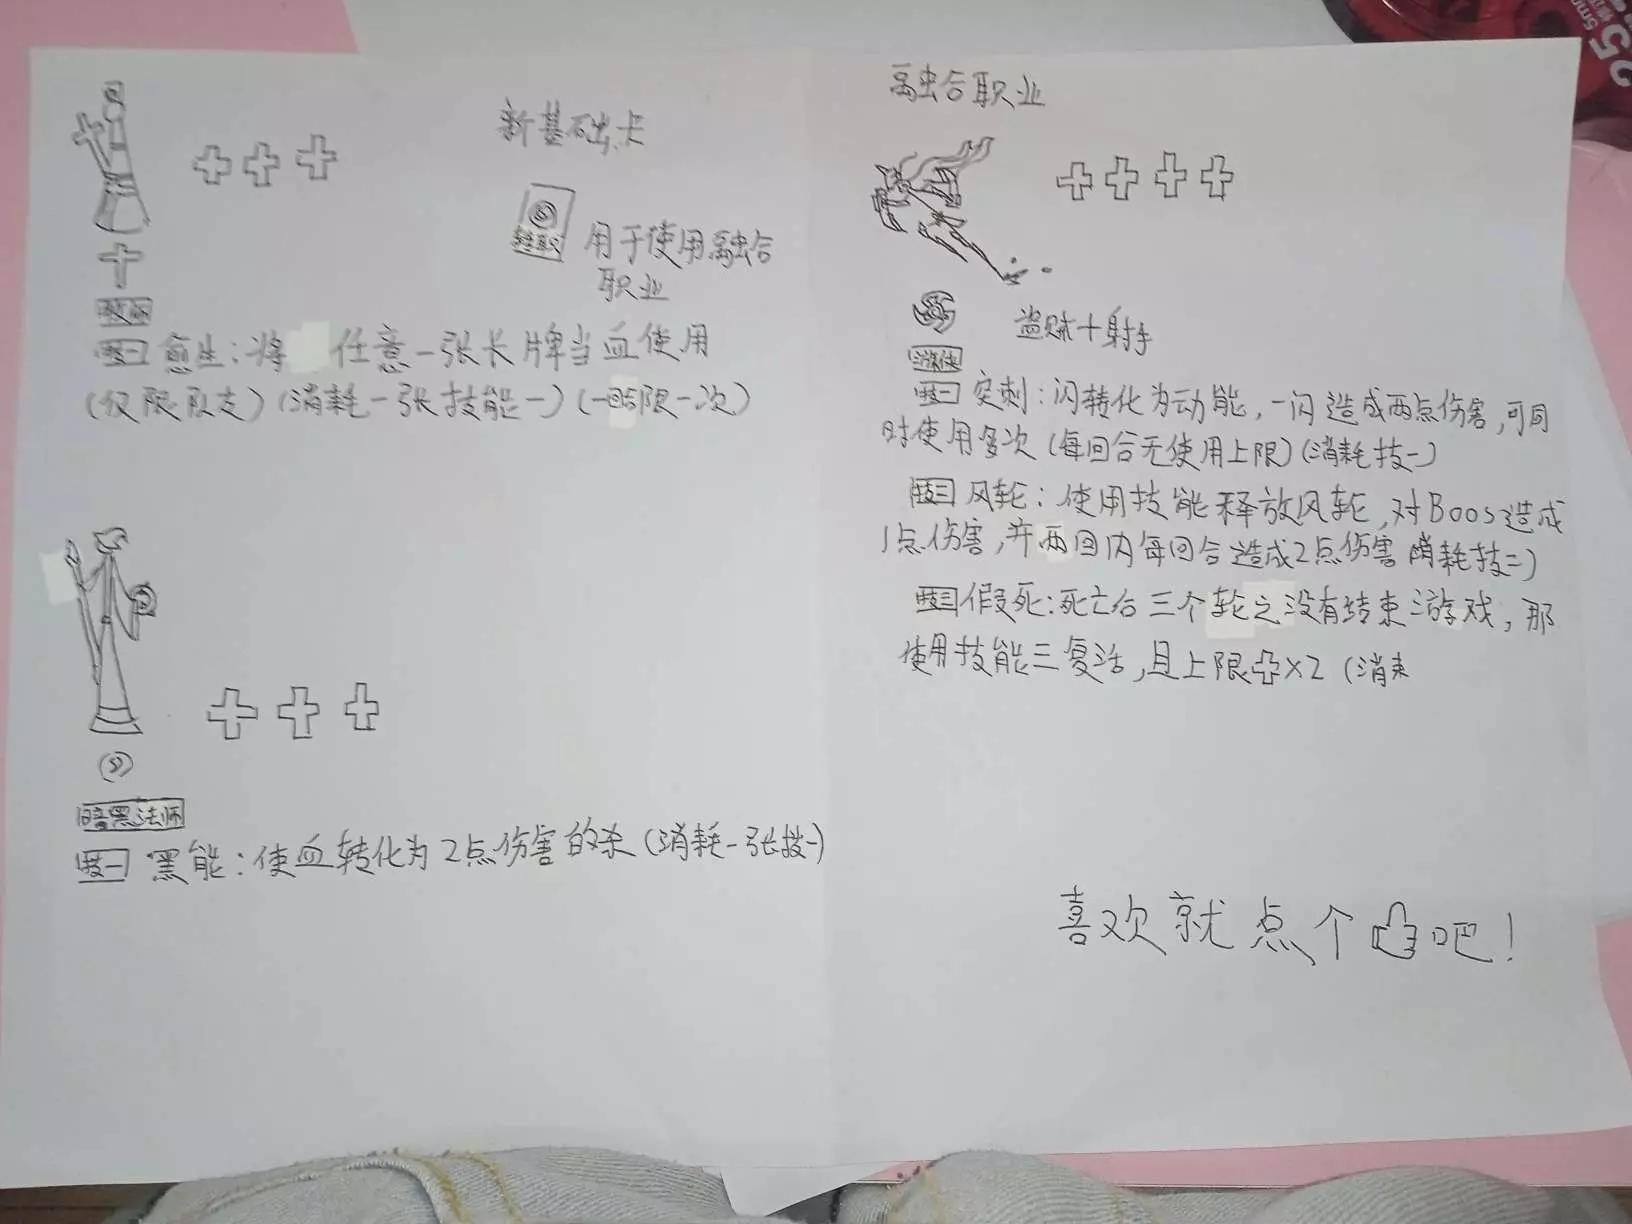 新基础卡
转职
用于使用融合
职业
牧师
技一 愈生:将任意一张卡牌当血使用
(仅限队友)(消耗一张技能一)(一回合限一次)
暗黑法师
技一 黑能:使血转化为2点伤害的杀(消耗一张技一)
融合职业
盗贼+射手
游侠
技一 突刺:闪转化为动能,一闪造成两点伤害,可同
时使用多次(每回合无使用上限)(消耗技一)
技二 风轮:使用技能释放风轮,对Boos造成
1点伤害,并两回内每回合造成2点伤害 消耗技二)
技三 假死:死亡后三个轮之没有结束游戏,那
使用技能三复活,且上限×2(消耒
喜欢就点个吧!
25
5mm